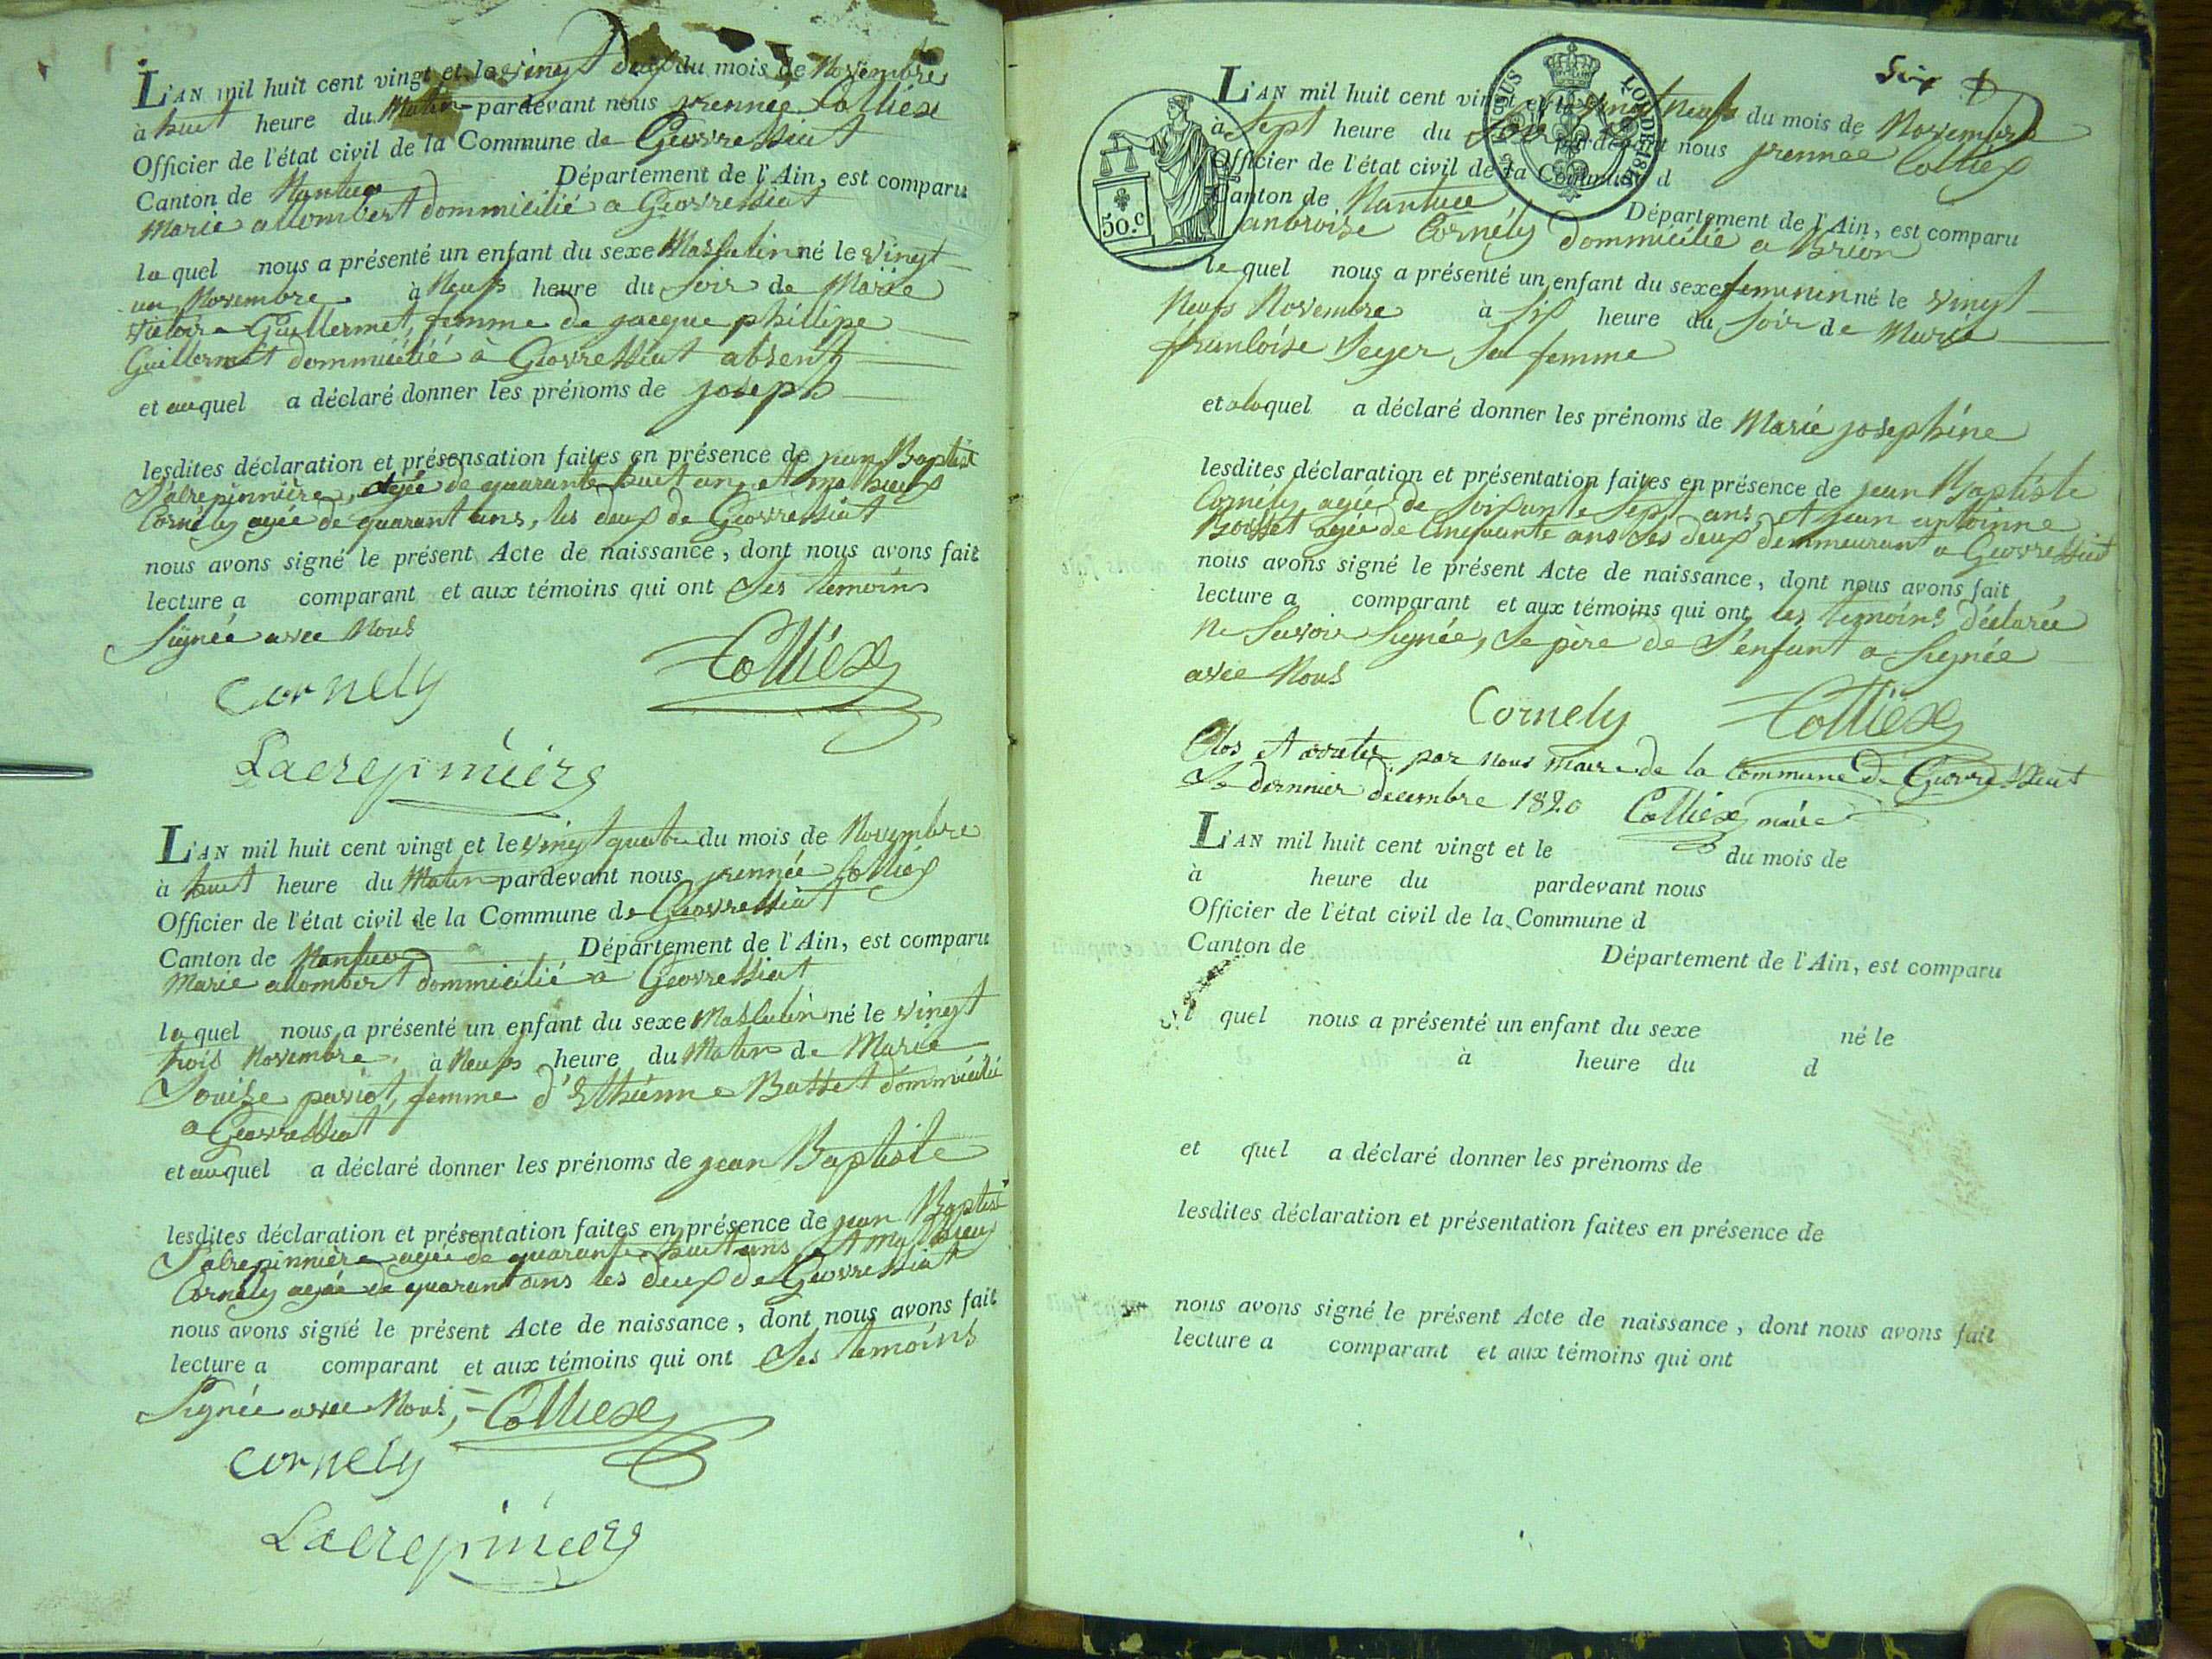 L'AN mil huit cent vingt et le vingt deux du mois de Novembre
à huit heure du Matin pardevant nous rennée Colliex
Officier de l'état civil de la Commune de Geovressiat
Canton de Nantua Département de l'Ain, est comparu
Marie allombert dommicilié a Geovressiat
la quel nous a présenté un enfant du sexe Masculin né le vingt
un Novembre à Neufs heure du soir de Marie
victoire Guillermet, femme de jacque phillipe
Guillermet dommicilié à Geovressiat absent
et auquel a déclaré donner les prénoms de joseph
lesdites déclaration et présensation faites en présence de jean Baptist
Lacrepinnière, agée de quarante huit an, et mathieux
Cornély agée de quarant ans, les deux de Geovressiat
nous avons signé le présent Acte de naissance, dont nous avons fait
lecture a comparant et aux témoins qui ont Les temoins
Signée avec Nous
Cornely Colliex
Lacrepiniere
L'AN mil huit cent vingt et le vingt quatre du mois de Novembre
à huit heure du Matin pardevant nous rennée Colliex
Officier de l'état civil de la Commune de Geovressiat
Canton de Nantua Département de l'Ain, est comparu
Marie allombert dommicilié a Geovressiat
la quel nous a présenté un enfant du sexe Masculin né le vingt
trois Novembre à Neufs heure du Matin de Marie
Louise pariot, femme d'Ethienne Basset dommicilié
a Geovressiat
et auquel a déclaré donner les prénoms de jean Baptiste
lesdites déclaration et présentation faites en présence de jean Baptist
Lacrepinnière agée de quarante huit ans et mathieux
Cornely agée de quarant ans les deux de Geovressiat
nous avons signé le présent Acte de naissance, dont nous avons fait
lecture a comparant et aux témoins qui ont Les temoins
Signée avec Nous, Colliex
Cornely
Lacrepiniere
Six
50.C
LOI DE 181
L'AN mil huit cent vingt et le vingt Neufs du mois de Novembre
à Sept heure du Soir pardevant nous rennée Colliex
Officier de l'état civil de la Commune d
Canton de Nantua Département de l'Ain, est comparu
anbroise Cornély dommicilié a Brion
le quel nous a présenté un enfant du sexe femininin né le vingt
Neufs Novembre à six heure du soir de Marie
françoise Seyer Sa femme
et a laquel a déclaré donner les prénoms de Marie josephine
lesdites déclaration et présentation faites en présence de jean Baptiste
Cornély agée de Soixante Sept ans, et jean antoinne
Bosset agée de Cinquante ans Les deux demmeurant a Geovressiat
nous avons signé le présent Acte de naissance, dont nous avons fait
lecture a comparant et aux témoins qui ont les temoins déclarée
Ne Savoir Signée, Le père de L'enfant a Signée
avec Nous
Cornely Colliex
Clos et arreter par nous maire de la Commune de Geovressiat
Le dernnier decembre 1820 Colliex maire
L'AN mil huit cent vingt et le du mois de
à heure du pardevant nous
Officier de l'état civil de la Commune d
Canton de Département de l'Ain, est comparu
l quel nous a présenté un enfant du sexe né le
à heure du d
et quel a déclaré donner les prénoms de
lesdites déclaration et présentation faites en présence de
nous avons signé le présent Acte de naissance, dont nous avons fait
lecture a comparant et aux témoins qui ont